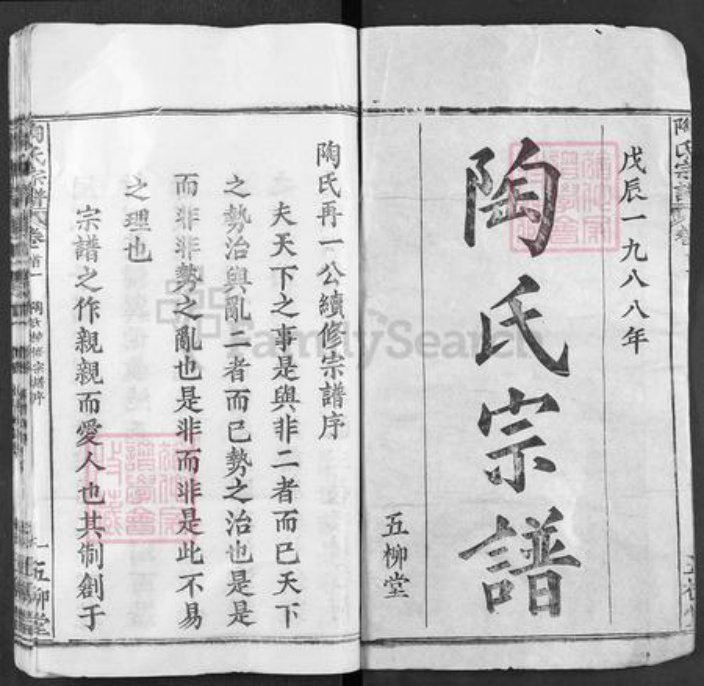 戊辰一九八八年
陶氏宗譜
五柳堂
陶氏再一公續修宗譜序
夫天下之事是與非二者而已天下
之勢治與亂二者而已勢之治也是是
而非非勢之亂也是非而非是此不易
之理也
宗譜之作親親而愛人也其制創于
陶氏宗譜 卷首
五柳堂
陶氏宗譜
FamilySearch